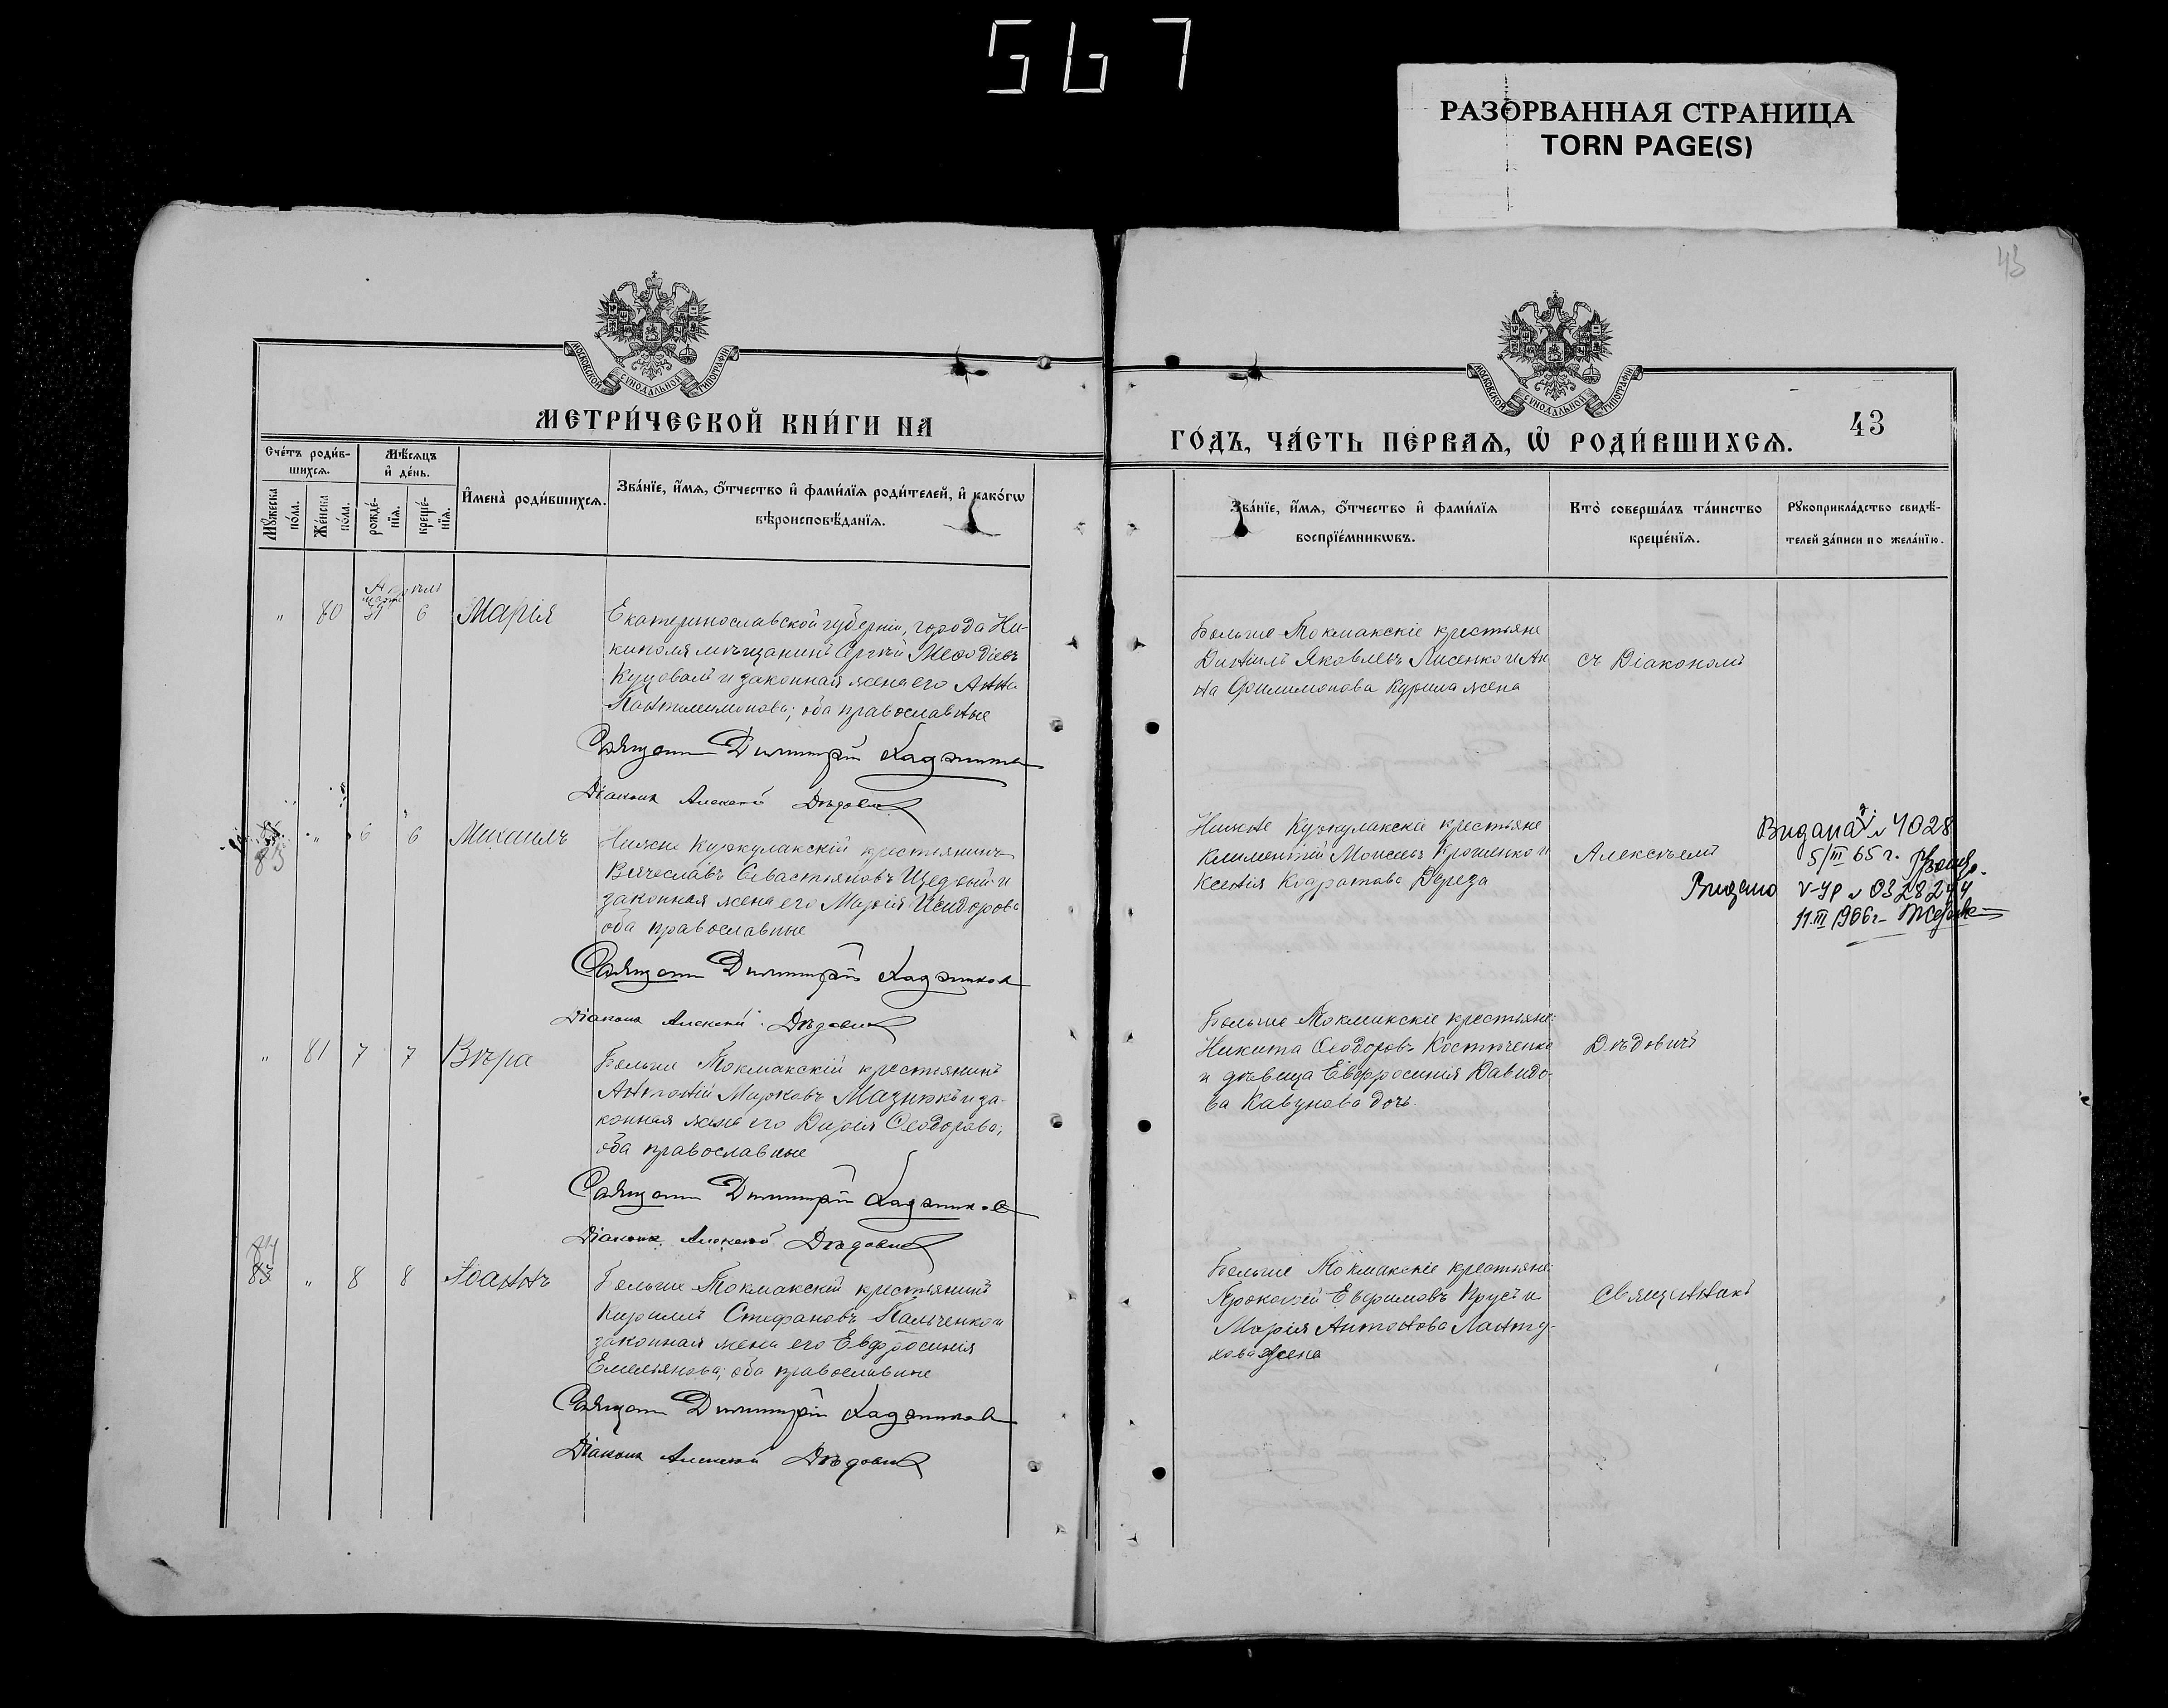 567
РАЗОРВАННАЯ СТРАНИЦА
TORN PAGE(S)
43
МОСКОВСКОЙ СУНОДАЛЬНОЙ ТИПОГРАФІИ
МОСКОВСКОЙ СУНОДАЛЬНОЙ ТИПОГРАФІИ
МЕТРИ́ЧЕСКОЙ КНИ́ГИ НА
ГО́ДЪ, ЧА́СТЬ ПЕ́РВАѦ, Ѡ҆ РОДИ́ВШИХСѦ.
43
Сче́тъ роди́в-
шихсѧ.
Мѣ́сѧцъ
и҆ де́нь.
Мꙋ́жеска
по́ла.
Же́нска
по́ла.
рожде́-
нїѧ.
креще́-
нїѧ.
И҆мена̀ роди́вшихсѧ.
Зва́нїе, и҆́мѧ, ѻ҆́тчество и҆ фами́лїѧ роди́телей, и҆ како́гѡ
вѣроисповѣ́данїѧ.
Зва́нїе, и҆́мѧ, ѻ҆́тчество и҆ фами́лїѧ
воспрїе́мникѡвъ.
Кто̀ соверша́лъ та́инство
креще́нїѧ.
Рꙋкоприкла́дство свидѣ́-
телей за́писи по жела́нїю.
" 80 31 6 Марія
Екатеринославской губерніи, города Ни-
кополя мѣщанинъ Сергѣй Меѳодіевъ
и законная жена его Анна
Пантелимонова; оба православные
Священ Димитрій
Діаконъ Алексѣй Дѣдович
Больше Токмакскіе крестьяне
Даніилъ Яковлевъ Лисенко и Ан
на Филимонова Курила жена
съ Діакономъ
" 6 6 Михаилъ
Нижне Куркулакскій крестьянинъ
Вячеславъ Севастьяновъ и
законная жена его Марія Исидорова
оба православные
Священ Димитрій
Діаконъ Алексѣй Дѣдович
Нижне Куркулакскіе крестьяне
Климентій Моисеевъ и
Ксенія Кодратова Дереза
Алексѣемъ
Видана № 4028
5/III 65 г.
Видано V-УР № 0328244
11.III 1966 г.
" 81 7 7 Вѣра
Больше Токмакскій крестьянинъ
Антоній Марковъ и за-
конная жена его Дарія Ѳеодорова;
оба православные
Священ Димитрій
Діаконъ Алексѣй Дѣдович
Больше Токмакскіе крестьяне:
Никита Ѳеодоровъ Костюченко
и дѣвица Евфросинія Давидо-
ва Кавунова дочь.
Дѣдовичъ
84
83 " 8 8 Іоаннъ
Больше Токмакскій крестьянинъ
Кириллъ Стефановъ Пальченко и
законная жена его Евфросинія
Емельянова; оба православные
Священ Димитрій
Діаконъ Алексѣй Дѣдович
Больше Токмакскіе крестьяне:
Прокопій Евфимовъ Прусъ и
Марія Антонова Ланту-
хова жена
Священникъ